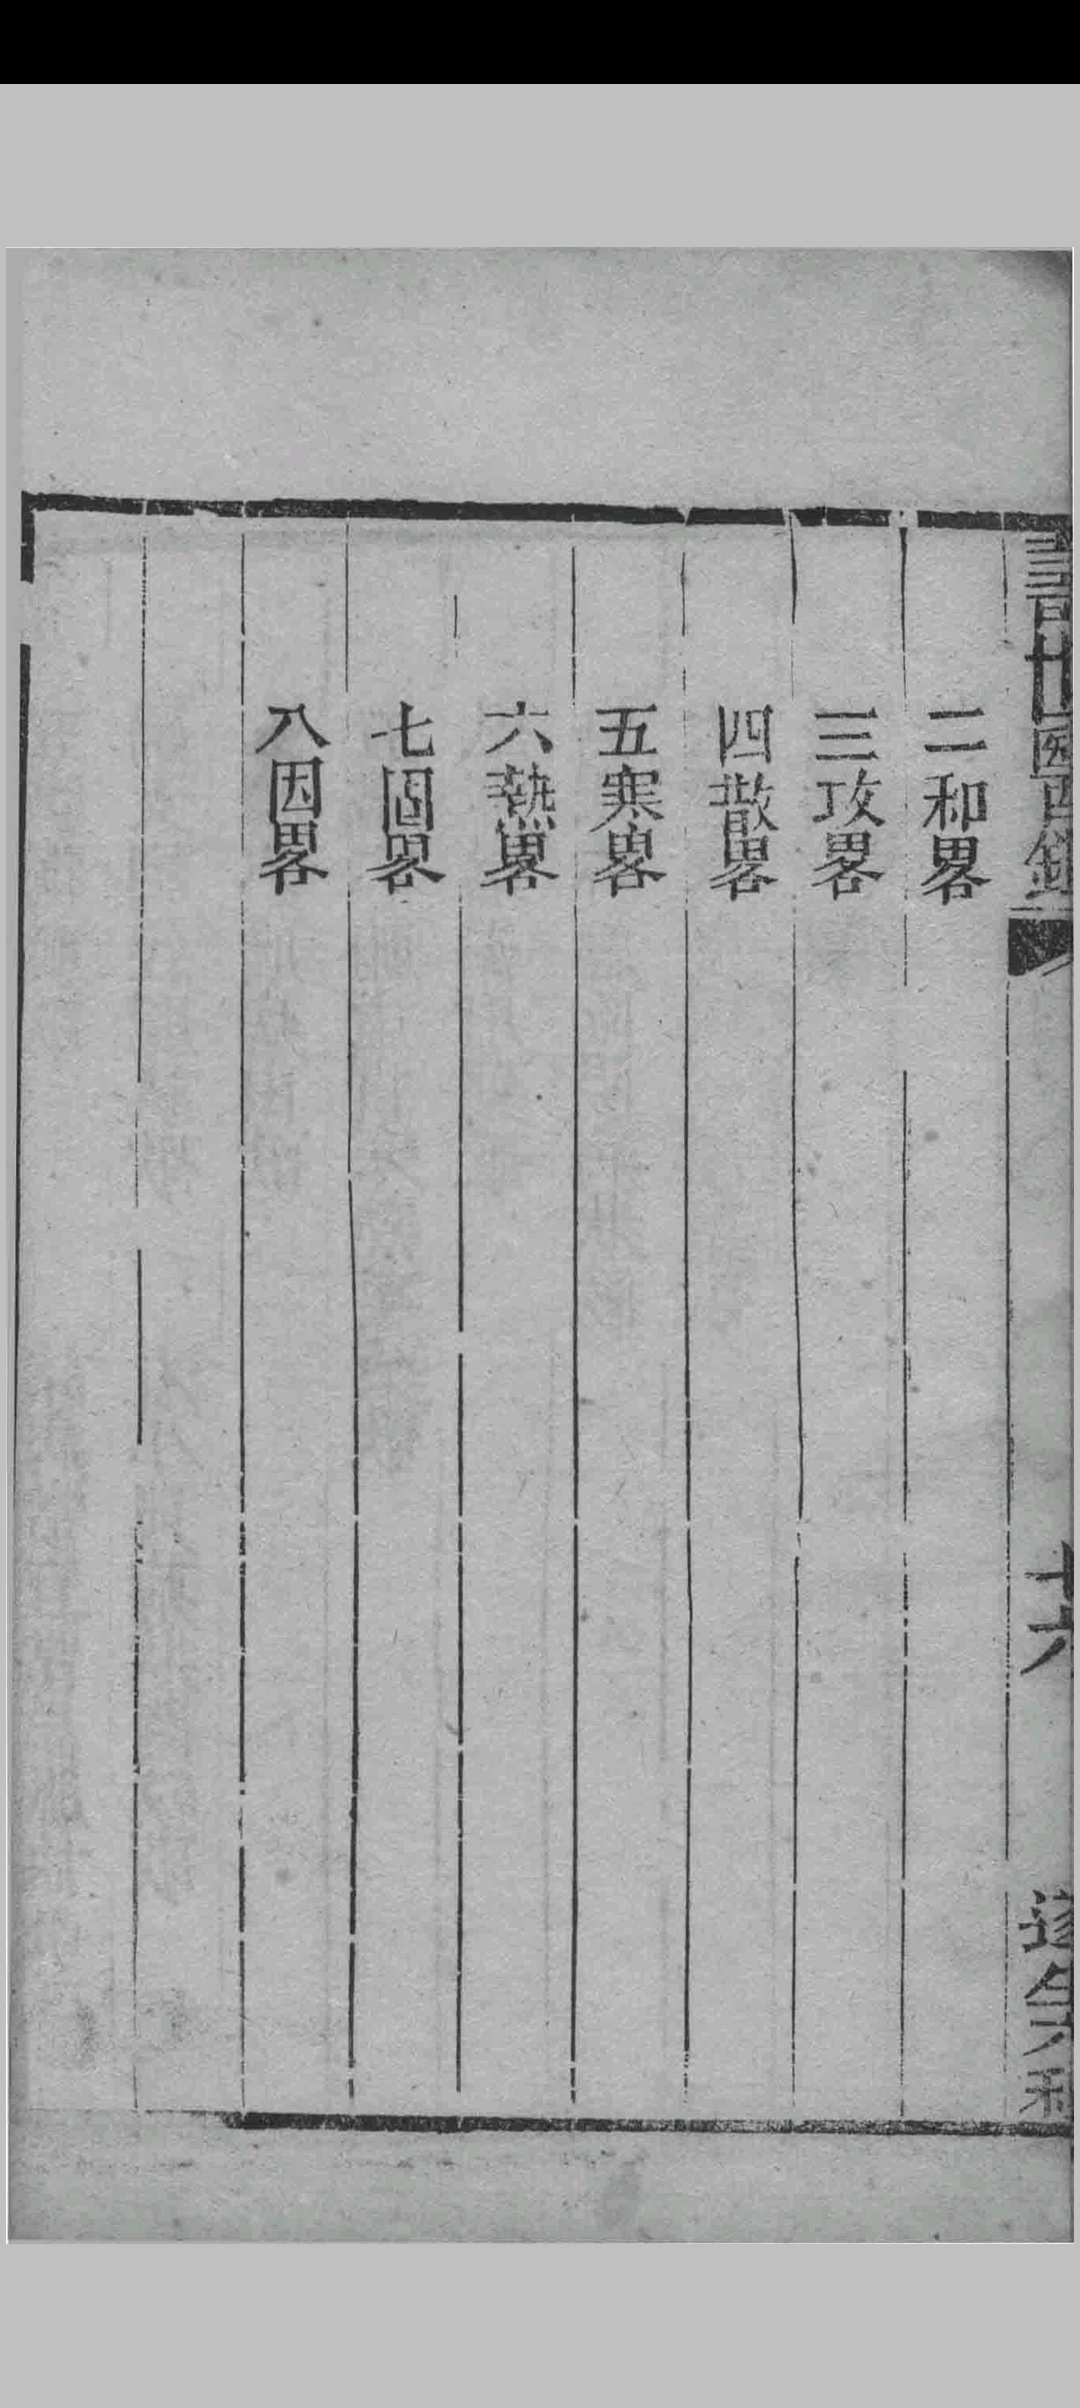 二和畧
三攻畧
四散畧
五寒畧
六熱畧
七固畧
八因畧